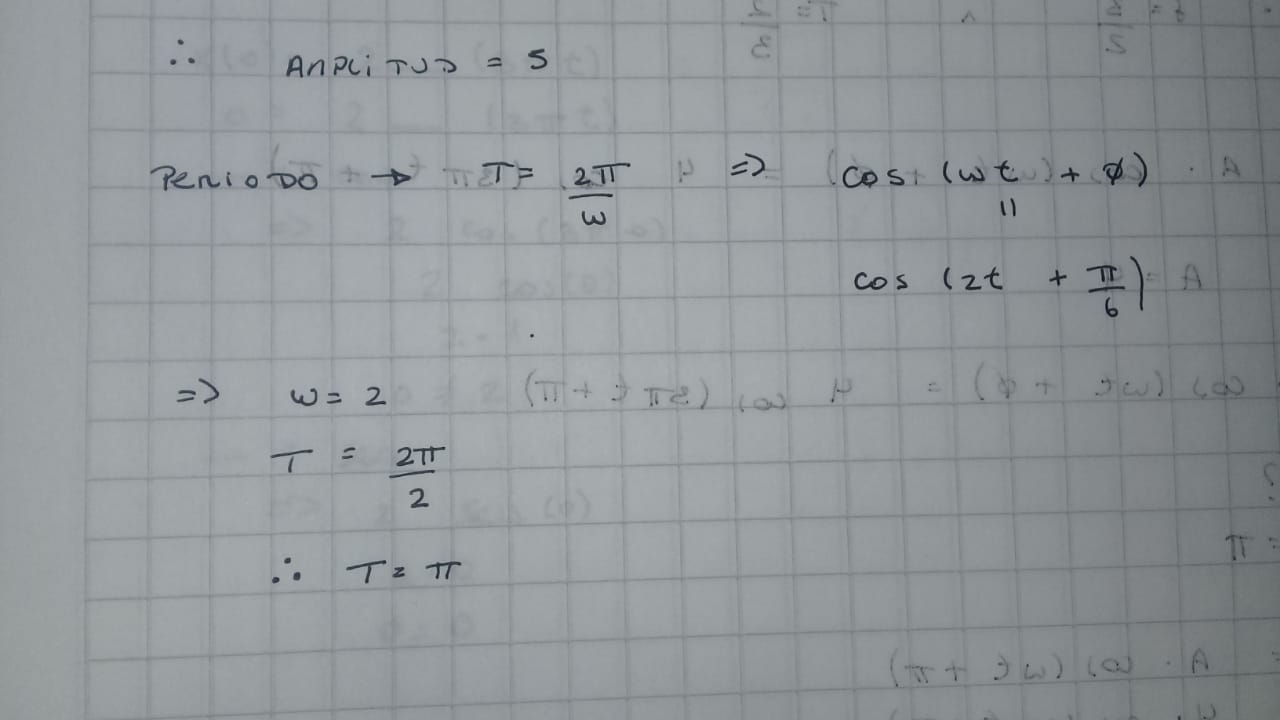 ∴ AMPLITUD = 5
PERIODO → T = 2π/ω => cos (ωt + φ)
||
cos (2t + π/6)
=> ω = 2
T = 2π/2
∴ T = π